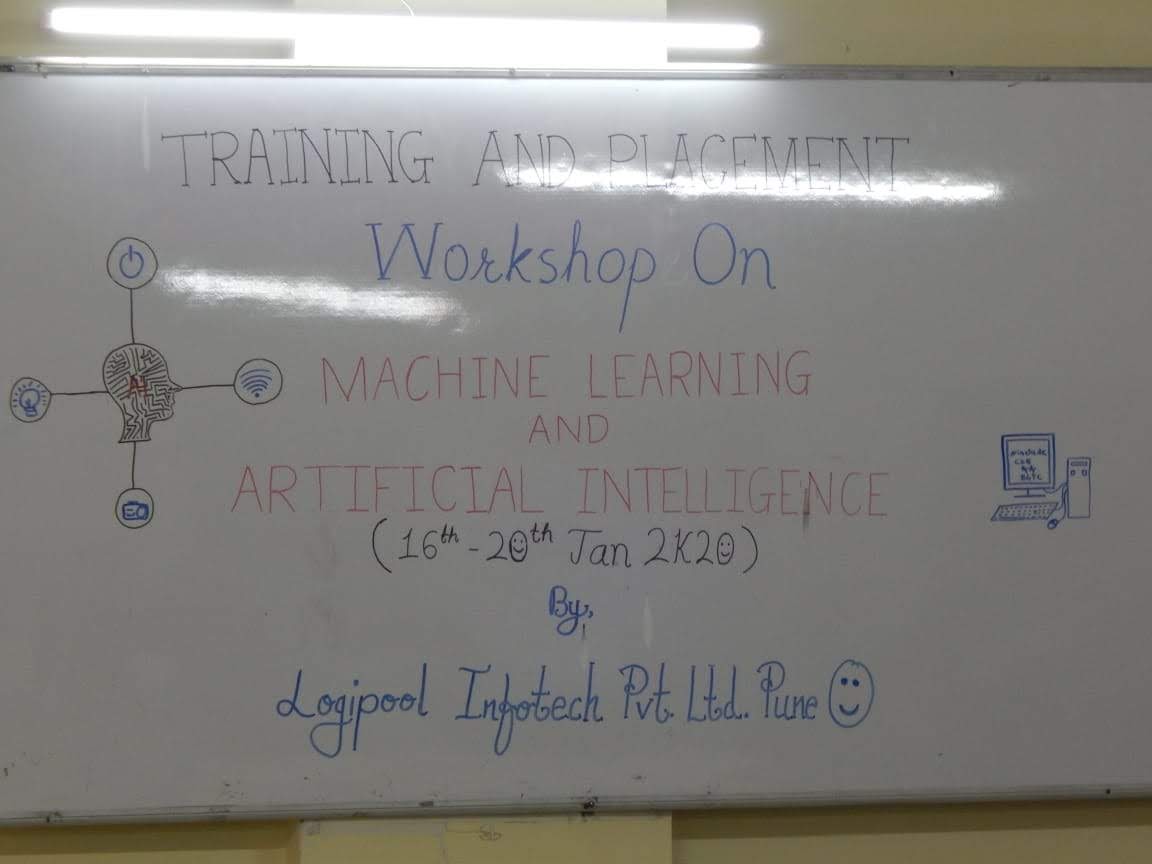 TRAINING AND PLACEMENT
Workshop On
AI
MACHINE LEARNING
AND
ARTIFICIAL INTELLIGENCE
(16th - 20th Jan 2K20)
By,
Logipool Infotech Pvt. Ltd. Pune